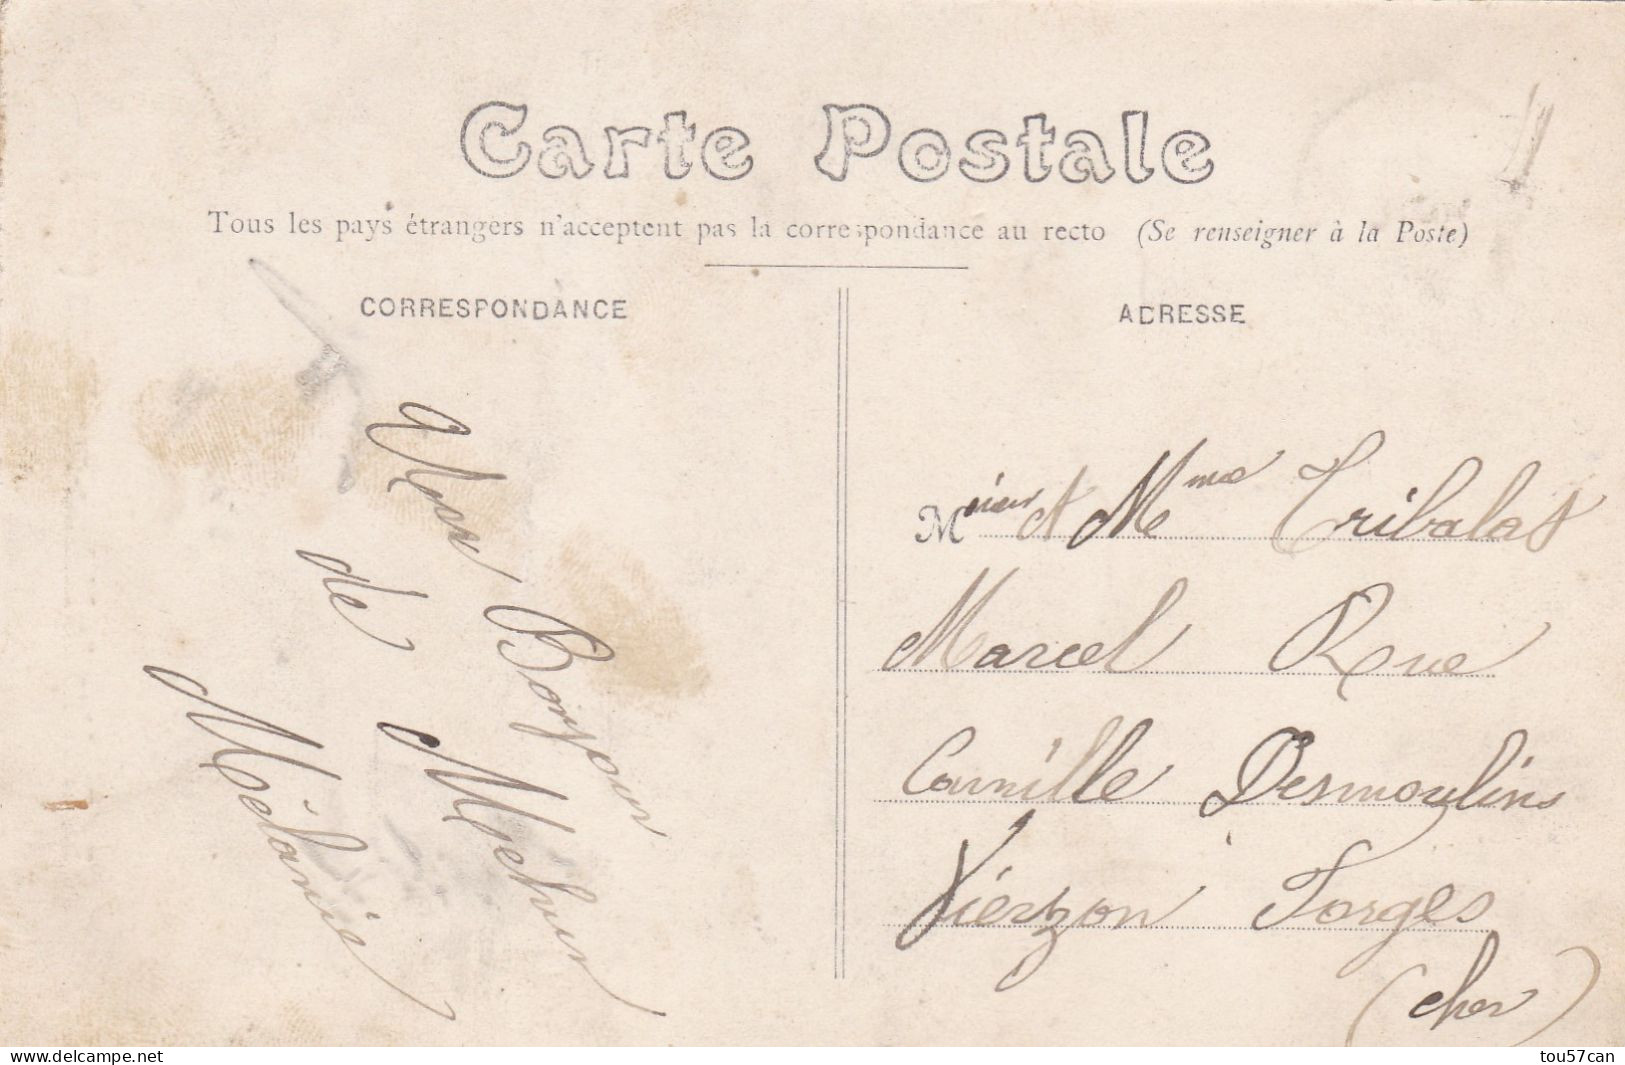 Carte Postale
Tous les pays étrangers n'acceptent pas la correspondance au recto (Se renseigner à la Poste)
CORRESPONDANCE
ADRESSE
Bonjour
de Mehun
Mélanie
Msieur et Mme Tribalat
Marcel Rue
Camille Desmoulins
Vierzon Forges
(cher)
www.delcampe.net
tou57can